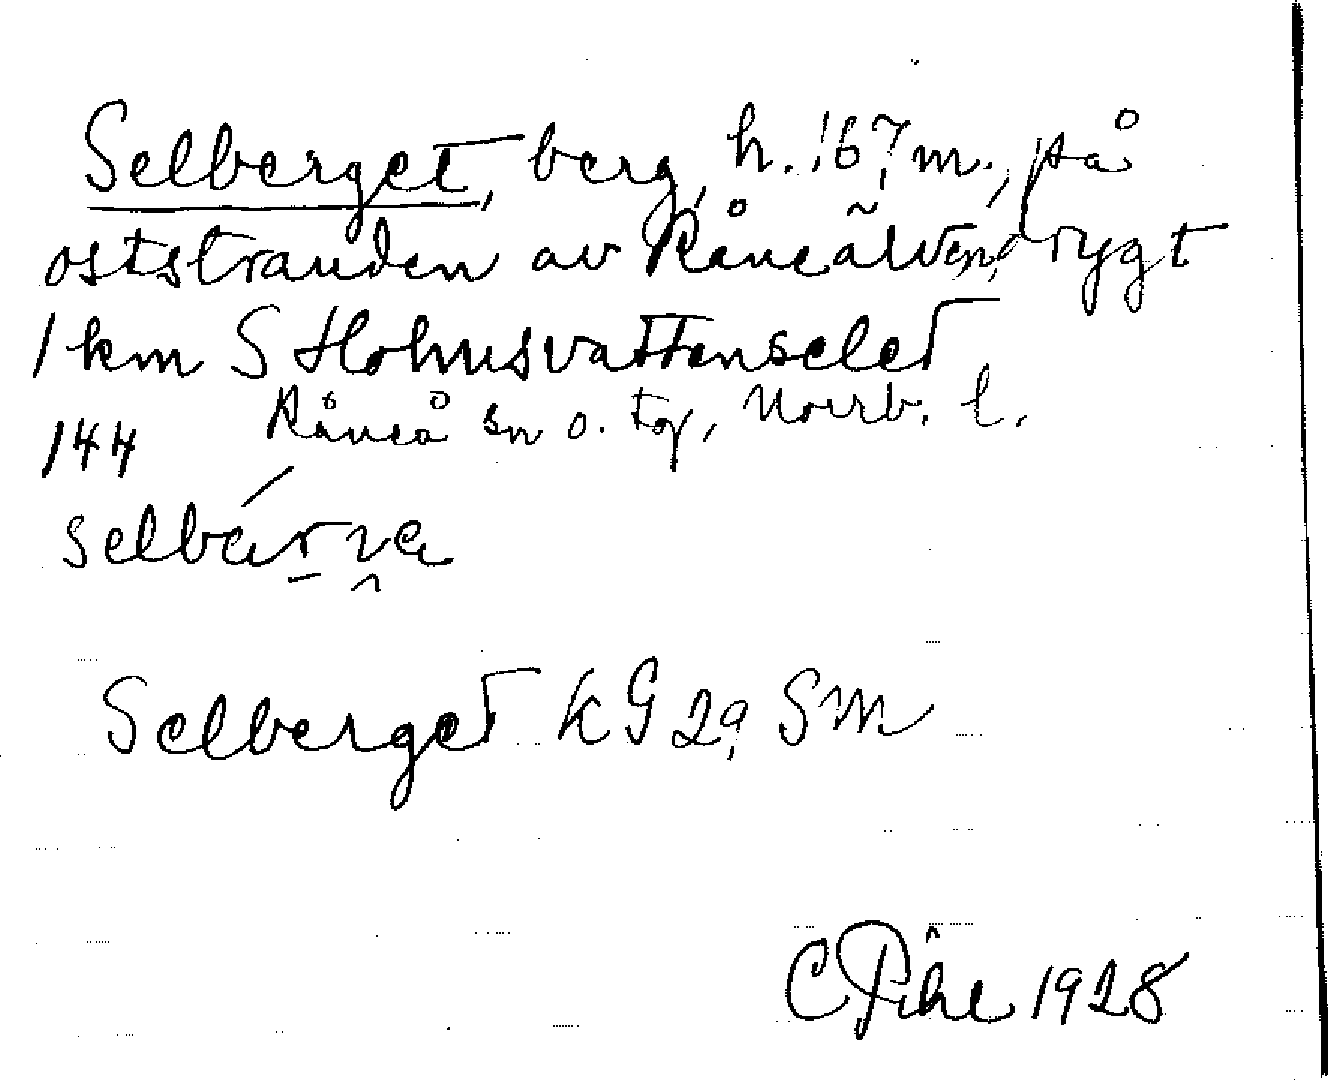 Selberget, berg, h. 167 m., på
oststranden av Råneälven, drygt
1 km S Holmsvattenselet
144 Råneå sn o. tg, Norrb. l.
selbárɟa
Selberget KG 29, Sm
C Pihl 1928